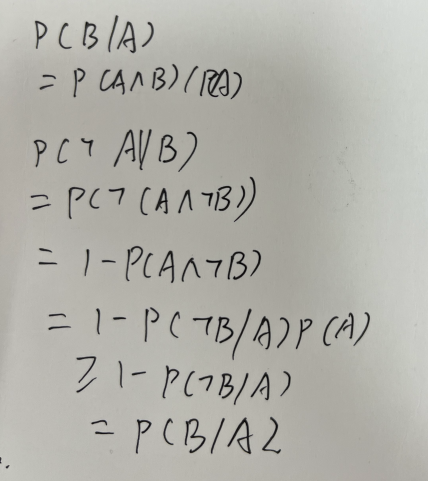 P(B/A)
= P(A∧B)/(P(A)
P(¬A∨B)
= P(¬(A∧¬B))
= 1-P(A∧¬B)
= 1-P(¬B/A)P(A)
≥ 1-P(¬B/A)
= P(B/A)